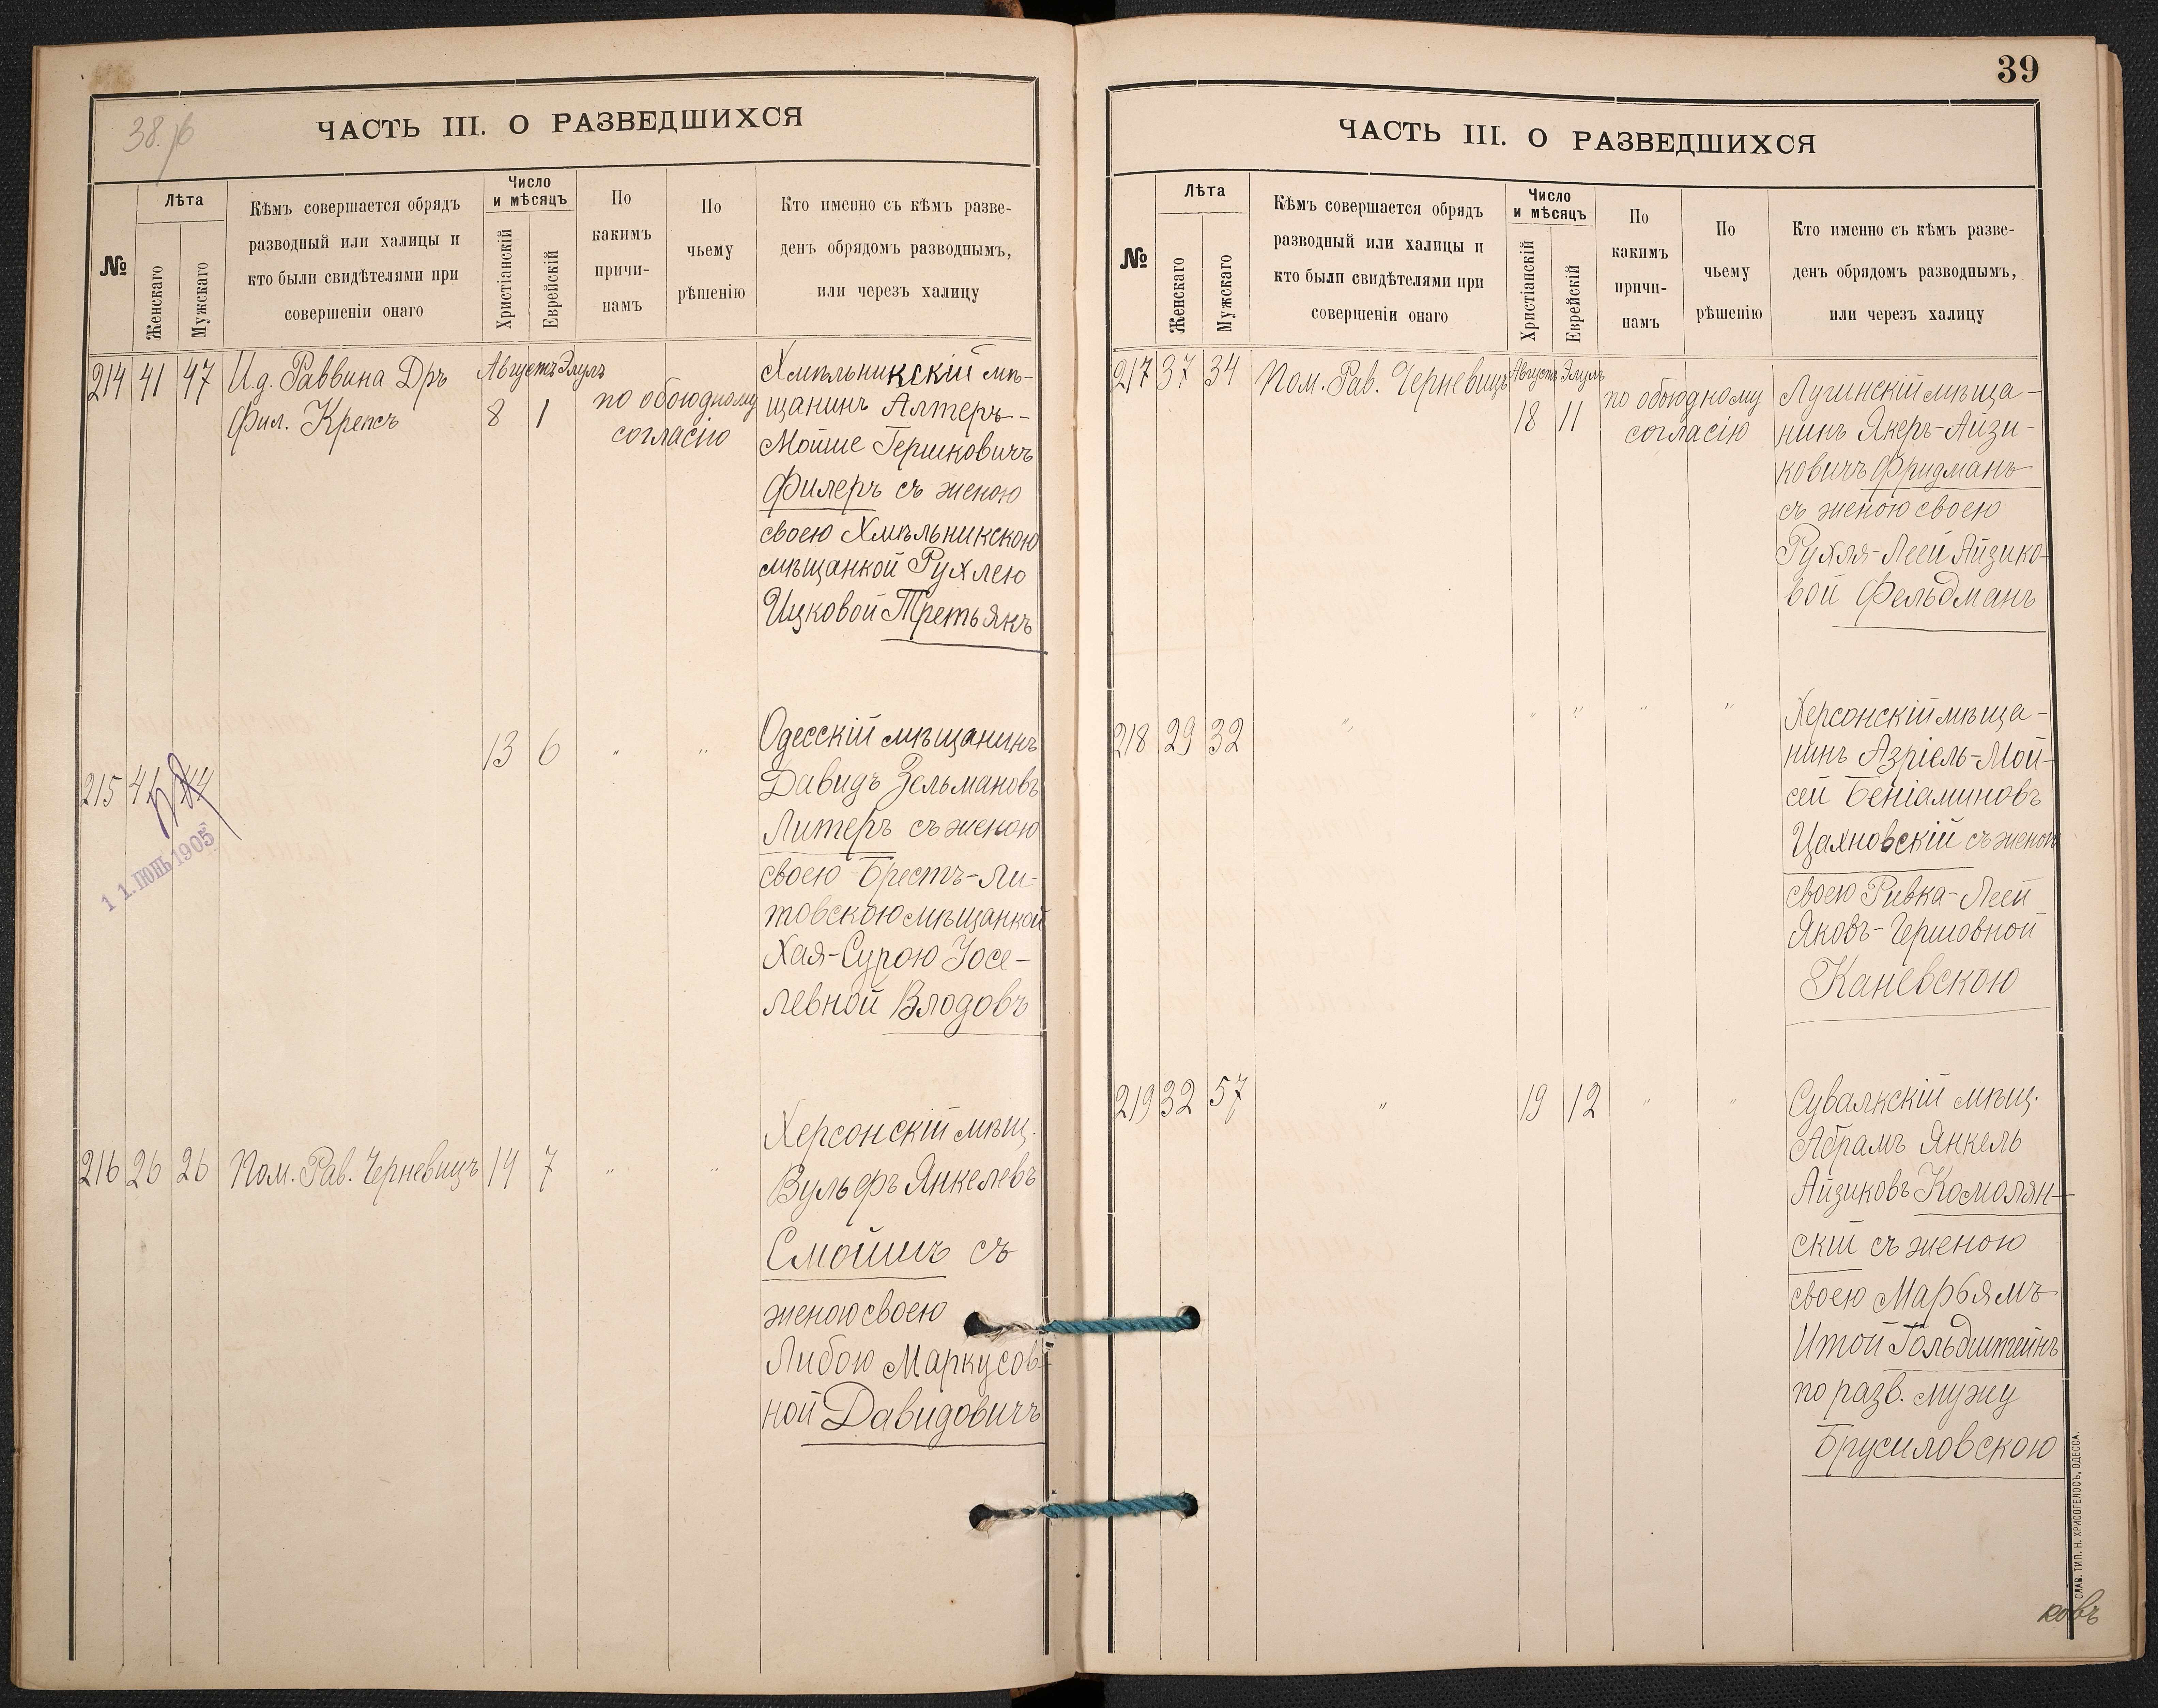 38.
ЧАСТЬ III. О РАЗВЕДШИХСЯ
№
Лѣта
Женскаго
Мужскаго
Кѣмъ совершается обрядъ
разводный или халицы и
кто были свидѣтелями при
совершеніи онаго
Число
и мѣсяцъ
Христіанскій
Еврейскій
По
какимъ
причи-
намъ
По
чьему
рѣшенію
Кто именно съ кѣмъ разве-
денъ обрядомъ разводнымъ,
или черезъ халицу
214 41 47 И.д. Раввина Дръ
Фил. Крепсъ
Августъ Элулъ
8 1
по обоюдному
согласію
Хмѣльникскій мѣ-
щанинъ Алтеръ-
Мойше Гершковичъ
Филеръ съ женою
своею Хмѣльникскою
мѣщанкой Рухлею
Ицковой Третьякъ
215 41 44
11. ІЮНЬ 1905
13 6 " "
Одесскій мѣщанинъ
Давидъ Зельмановъ
Литеръ съ женою
своею Брестъ-Ли-
товскою мѣщанкой
Хая-Сурою Іосе-
левной Влодовъ
216 26 26 Пом. Рав. Черневицъ 14 7 " "
Херсонскій мѣщ.
Вульфъ Янкелевъ
Смойшъ съ
женою своею
Либою Маркусов-
ной Давидовичъ
39
ЧАСТЬ III. О РАЗВЕДШИХСЯ
№
Лѣта
Женскаго
Мужскаго
Кѣмъ совершается обрядъ
разводный или халицы и
кто были свидѣтелями при
совершеніи онаго
Число
и мѣсяцъ
Христіанскій
Еврейскій
По
какимъ
причи-
намъ
По
чьему
рѣшенію
Кто именно съ кѣмъ разве-
денъ обрядомъ разводнымъ,
или черезъ халицу
217 37 34 Пом. Рав. Черневицъ
Августъ Элулъ
18 11
по обоюдному
согласію
Лугинскій мѣща-
нинъ Якеръ-Айзи-
ковичъ Фридманъ
съ женою своею
Рухля-Леей Айзико-
вой Фельдманъ
218 29 32 " " " " "
Херсонскій мѣща-
нинъ Азріель-Мой-
сей Беніаминовъ
Цахновскій съ женою
своею Ривка-Леей
Яковъ-Гершовной
Каневскою
219 32 57 " 19 12 " "
Сувалкскій мѣщ.
Абрамъ Янкель
Айзиковъ Комолян-
скій съ женою
своею Марьямъ
Итой Гольдштейнъ
по разв. мужу
Брусиловскою
СЛАВ. ТИП. Н. ХРИСОГЕЛОСЪ, ОДЕССА.
ковъ